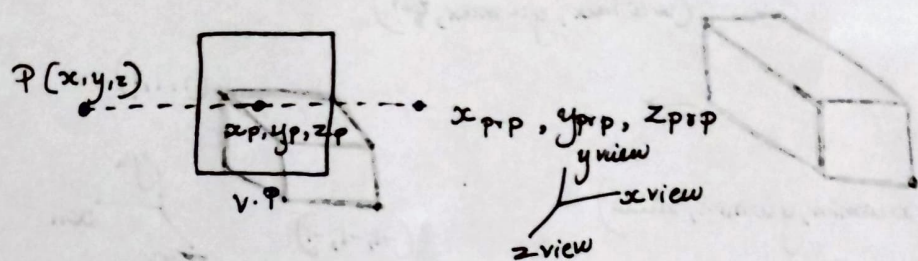 P(x,y,z)
xp,yp,zp
v.P.
xprp, yprp, zprp
y view
x view
z view